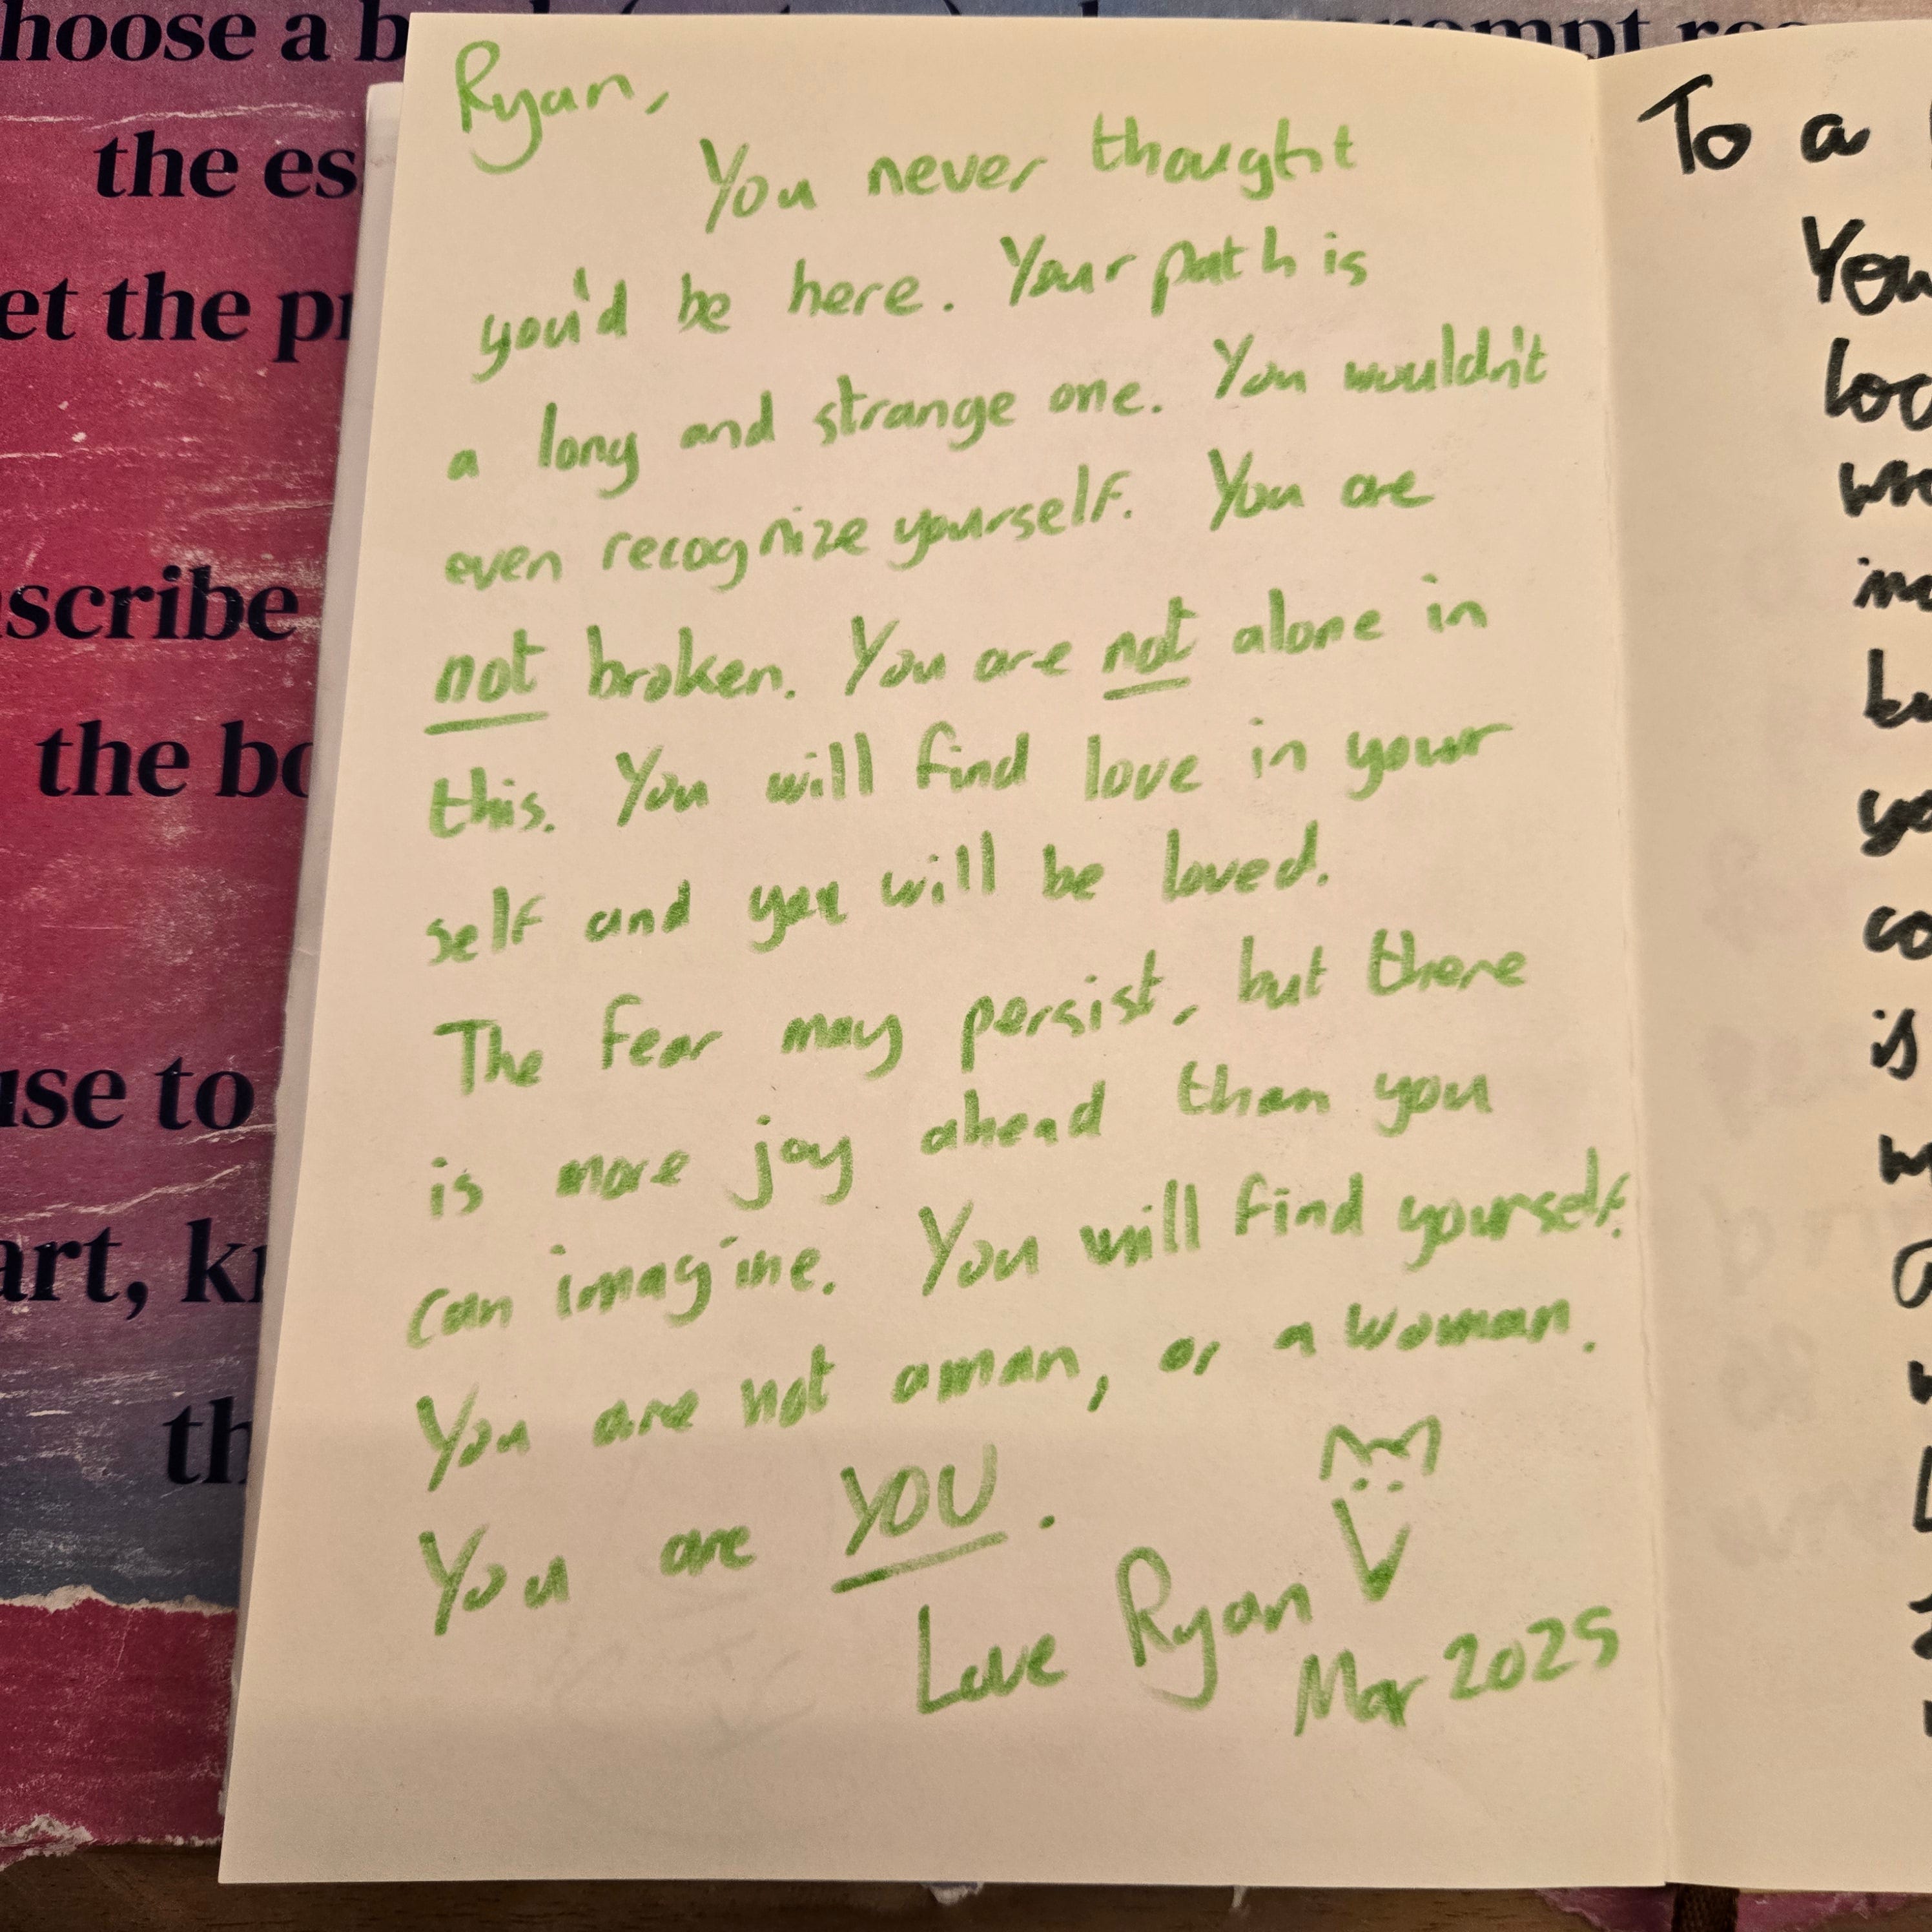 Ryan,
You never thought
you'd be here. Your path is
a long and strange one. You wouldn't
even recognize yourself. You are
not broken. You are not alone in
this. You will find love in your
self and you will be loved.
The fear may persist, but there
is more joy ahead than you
can imagine. You will find yourself.
You are not a man, or a woman.
You are YOU.
Love Ryan
Mar 2025
To a
You
is
hoose a b
the es
et the pr
scribe
the bo
use to
art, kn
th